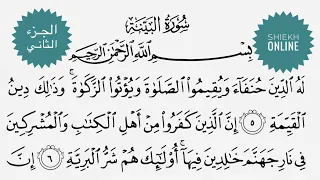 الجزء
الثاني
SHIEKH
ONLINE
سُورَةُ الْبَيِّنَةِ
بِسْمِ ٱللَّهِ ٱلرَّحْمَٰنِ ٱلرَّحِيمِ
لَهُ ٱلدِّينَ حُنَفَآءَ وَيُقِيمُوا۟ ٱلصَّلَوٰةَ وَيُؤْتُوا۟ ٱلزَّكَوٰةَ ۚ وَذَٰلِكَ دِينُ
ٱلْقَيِّمَةِ ٥ إِنَّ ٱلَّذِينَ كَفَرُوا۟ مِنْ أَهْلِ ٱلْكِتَٰبِ وَٱلْمُشْرِكِينَ
فِى نَارِ جَهَنَّمَ خَٰلِدِينَ فِيهَآ ۚ أُو۟لَٰٓئِكَ هُمْ شَرُّ ٱلْبَرِيَّةِ ٦ إِنَّ